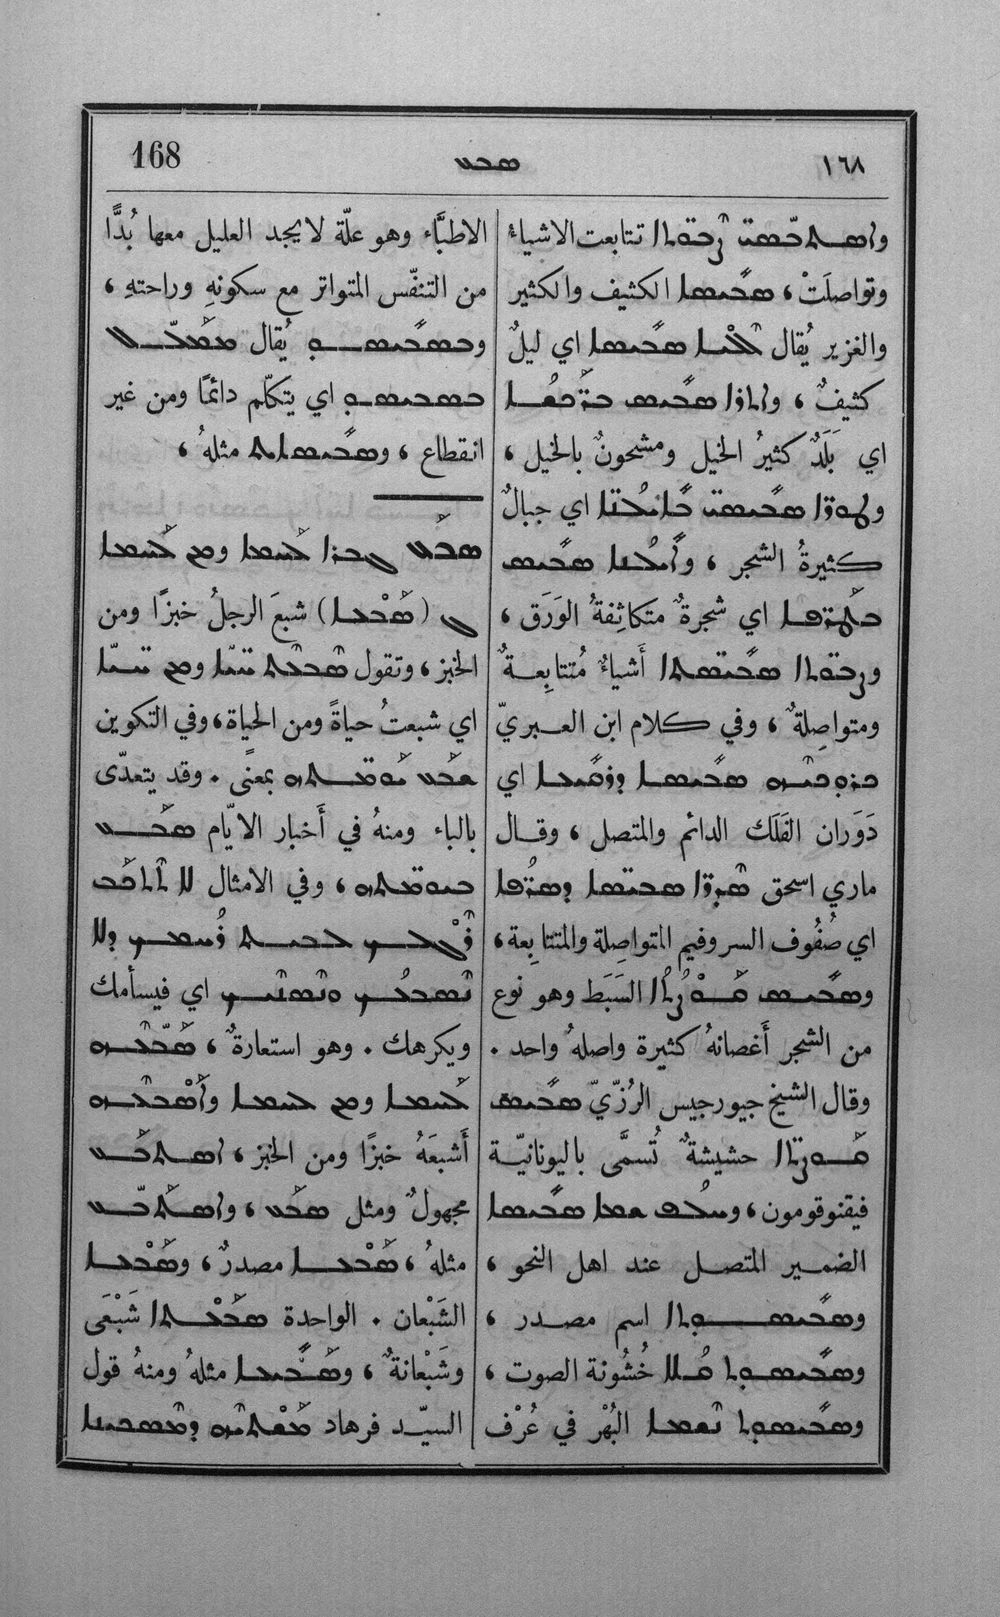 168
ܣܒܥ
١٦٨
ܘܐܣܬܒܣܝ̈ ܨܒ̈ܘܬܐ تتابعت الاشياءُ
وتواصلَتْ ، ܣܒܝܣܐ الكثيف والكثير
والغزير يُقال ܠܠܝܐ ܣܒܝܣܐ اي ليلٌ
كثيفٌ ، ܘܐܬܪܐ ܣܒܝܣ ܒܪ̈ܟܫܐ
اي بَلَدٌ كثيرُ الخيل ومشحونٌ بالخيل ،
ܘܛܘܪ̈ܐ ܣܒܝܣܝ̈ ܒܐܝܠܢ̈ܐ اي جبالٌ
كثيرةُ الشجر ، ܘܐܝܠܢܐ ܣܒܝܣ
ܒܛܪ̈ܦܐ اي شجرةٌ متكاثِفةُ الوَرَق ،
ܘܨܒ̈ܘܬܐ ܣܒܝ̈ܣܬܐ أَشياءٌ مُتتابِعةٌ
ومتواصِلةٌ ، وفي كلام ابن العبريّ
ܟܪ̈ܘܟܝܗ ܣܒܝܣܐ ܕܪܩܝܥܐ اي
دَوَران الفَلَك الدائم والمتصل ، وقال
ماري اسحق ܣܕܪ̈ܐ ܣܒܝܣ̈ܐ ܕܣܪ̈ܦܐ
اي صُفُوف السروفيم المتواصِلة والمتتابِعة ،
ܘܣܒܝܣ ܩܘܨܬܐ السَبَط وهو نوع
من الشجر أَغصانهُ كثيرة واصلهُ واحد .
وقال الشيخ جيورجيس الرُزّيّ ܣܒܝܣ
ܩܘܨ̈ܬܐ حشيشةٌ تُسمَّى باليونانيّة
فيقنوقومون ، ܘܚܠܦ ܫܡܐ ܣܒܝܣܐ
الضمير المتصل عند اهل النحو ،
ܘܣܒܝܣܘܬܐ اسم مصدر ،
ܘܣܒܝܣܘܬ ܩܠܐ خُشُونة الصوت ،
ܘܣܒܝܣܘܬ ܢܫܡܐ البُهْر في عُرْف
الاطبَّاء وهو علّة لا يجد العليل معها بُدًّا
من التنفّس المتواتر مع سكونهِ وراحتهِ ،
ܘܒܣܒܝܣܘ يُقال ܡܡܠܠ
ܒܣܒܝܣܘ اي يتكلّم دائمًا ومن غير
انقطاع ، ܘܣܒܝܣܐܝܬ مثلهُ ،
ܣܒܥ ܓܒܪܐ ܠܚܡܐ ܘܡܢ ܠܚܡܐ
(ܣܒܥܐ) شبعَ الرجلُ خبزًا ومن
الخبز ، وتقول ܣܒܥܬ ܚܝ̈ܐ ܘܡܢ ܚܝ̈ܐ
اي شبعتُ حياةً ومن الحياة ، وفي التكوين
ܣܒܥ ܝܘܡ̈ܬܗ بمعنًى . وقد يتعدّى
بالباء ومنهُ في أَخبار الايّام ܣܒܥ
ܒܝܘܡ̈ܬܗ ، وفي الامثال ܠܐ
ܪܓܠܟ ܠܒܝܬ ܪܚܡܟ ܕܠܐ
ܢܣܒܥܟ ܘܢܣܢܝܟ اي فيسأمك
ويكرهك . وهو استعارةٌ ، ܣܒܥܗ
ܠܚܡܐ ܘܡܢ ܠܚܡܐ ܘܐܣܒܥܗ
أَشبعَهُ خبزًا ومن الخبز ، ܐܣܬܒܥ
مجهولٌ ومثل ܣܒܥ ، ܘܐܣܬܒܥ
مثلهُ ، ܣܒܥܐ مصدرٌ ، ܘܣܒܥܐ
الشَبْعان . الواحدة ܣܒܥܬܐ شَبْعَى
وشَبْعانةٌ ، ܘܣܒܝܥܐ مثلهُ ومنهُ قول
السيّد فرهاد